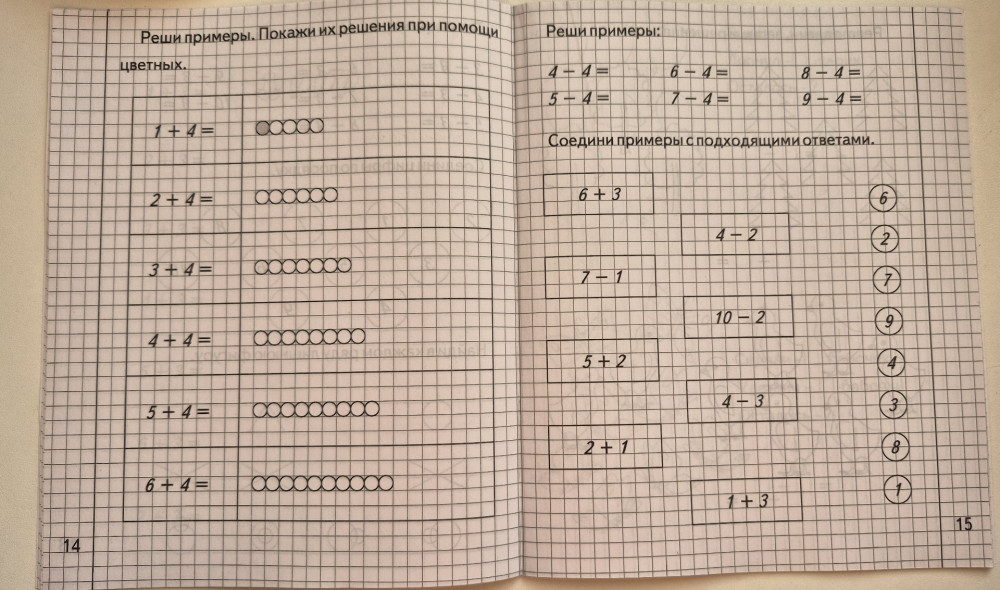 Реши примеры. Покажи их решения при помощи
цветных.
1 + 4 =
2 + 4 =
3 + 4 =
4 + 4 =
5 + 4 =
6 + 4 =
14
Реши примеры:
4 − 4 = 6 − 4 = 8 − 4 =
5 − 4 = 7 − 4 = 9 − 4 =
Соедини примеры с подходящими ответами.
6 + 3
6
4 − 2
2
7 − 1
7
10 − 2
9
5 + 2
4
4 − 3
3
2 + 1
8
1 + 3
1
15